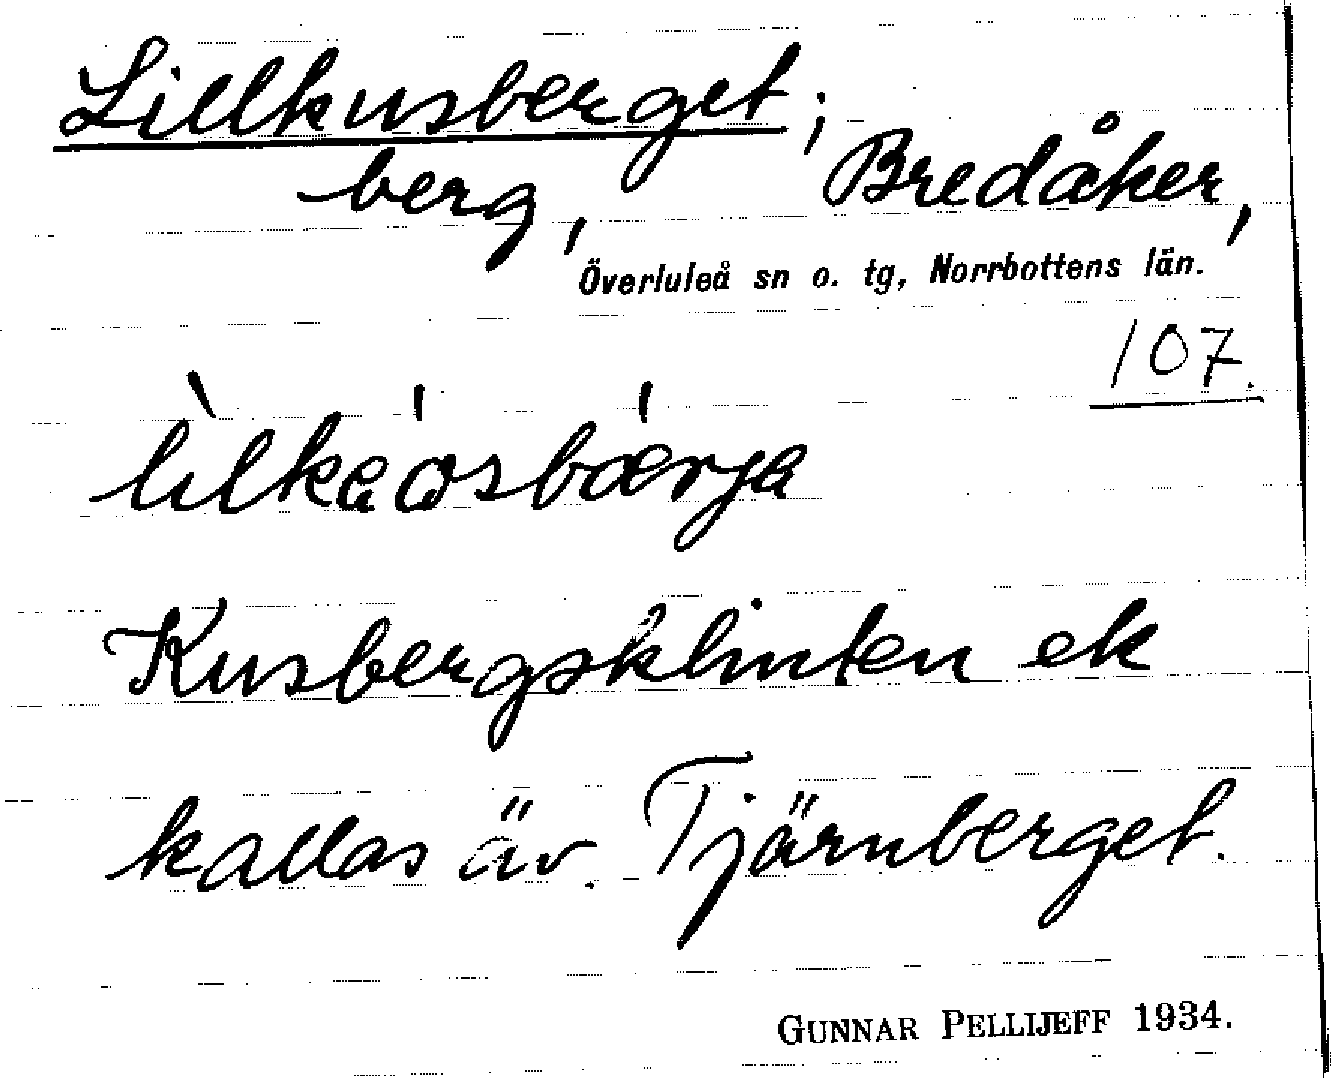 Lillkusberget;
berg, Bredåker,
Överluleå sn o. tg, Norrbottens län.
107.
Kusbergsklinten ek
kallas äv. Tjärnberget.
GUNNAR PELLIJEFF 1934.